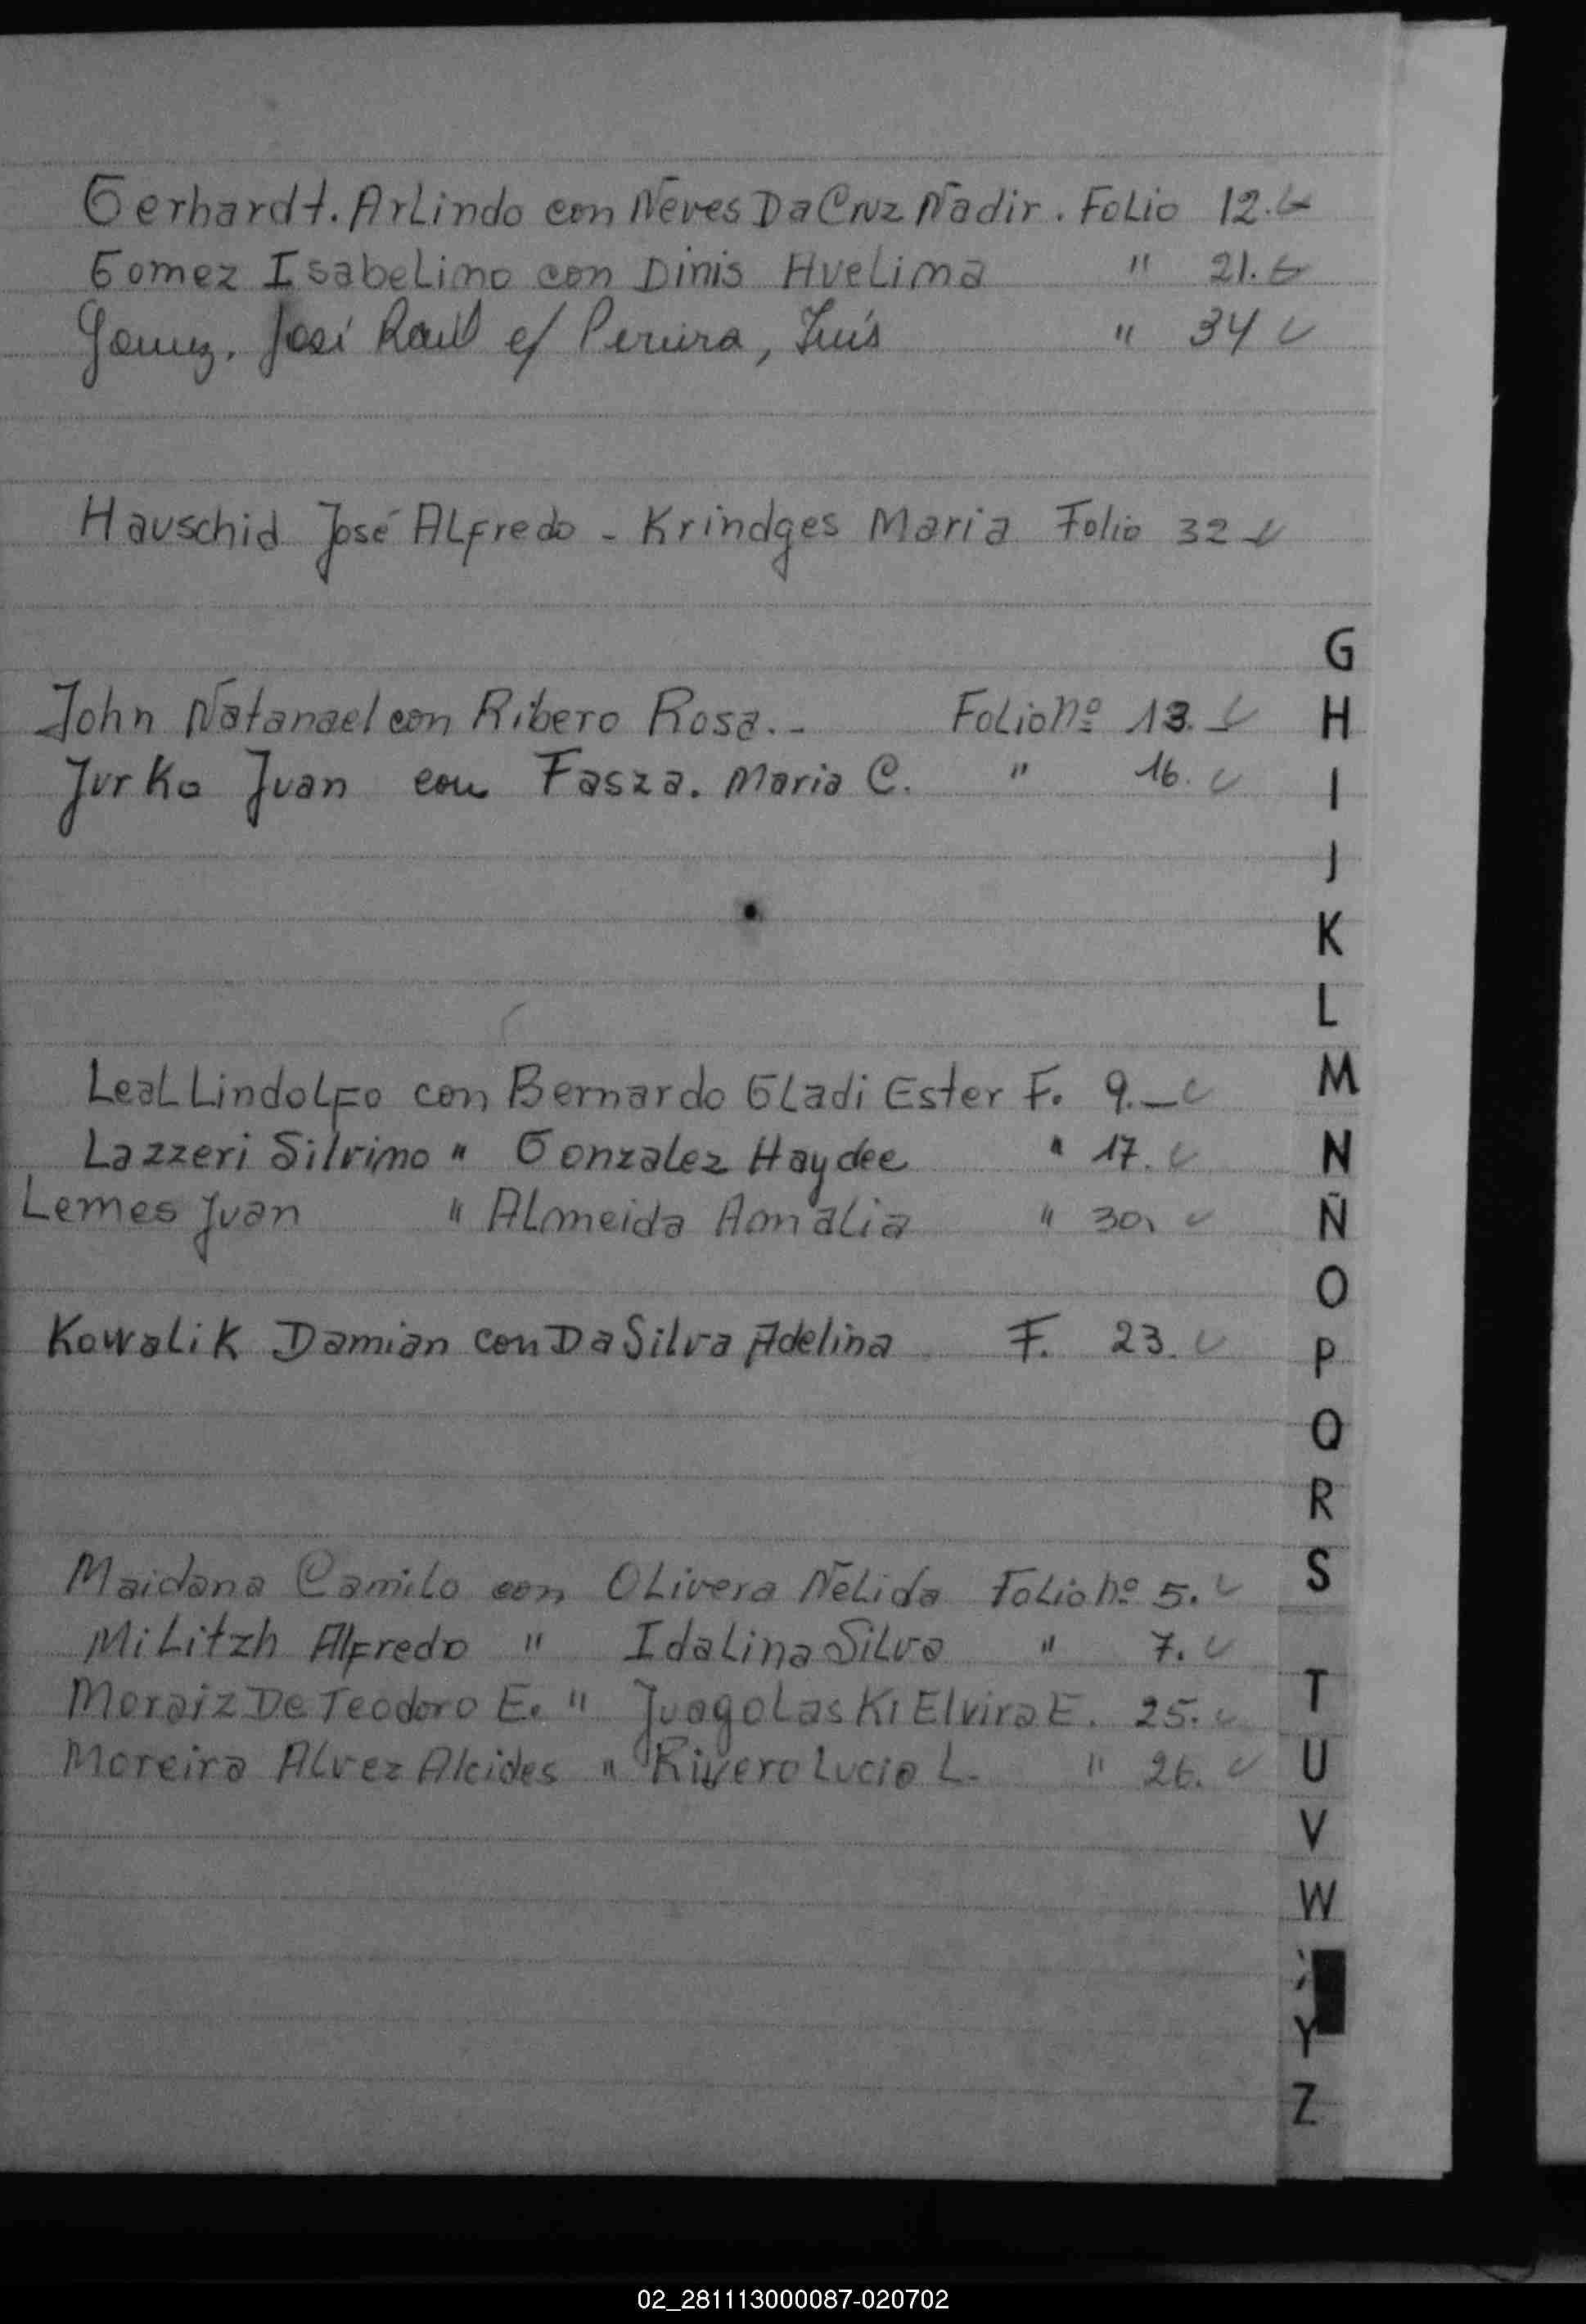 Gerhardt. Arlindo con Neves Da Cruz Nadir. Folio 12.
Gomez Isabelino con Dinis Avelima " 21.
Gomez. José Raúl c/ Pereira, Luis " 34
Hauschid José Alfredo - Krindges Maria Folio 32
John Natanael con Ribero Rosa.- Folio Nº 13.
Jurko Juan con Fasza. Maria C. " 16.
Leal Lindolfo con Bernardo Gladi Ester F. 9.-
Lazzeri Silvimo " Gonzalez Haydee " 17.
Lemes Juan " Almeida Amalia " 30.
Kowalik Damian con Da Silva Adelina F. 23.
Maidana Camilo con Olivera Nelida Folio Nº 5.
Militzh Alfredo " Idalina Silva " 7.
Moraiz De Teodoro E. " JuagoLasKi Elvira E. 25.
Moreira Alvez Alcides " Rivero Lucia L. " 26.
G
H
I
J
K
L
M
N
Ñ
O
P
Q
R
S
T
U
V
W
Y
Z
02_281113000087-020702